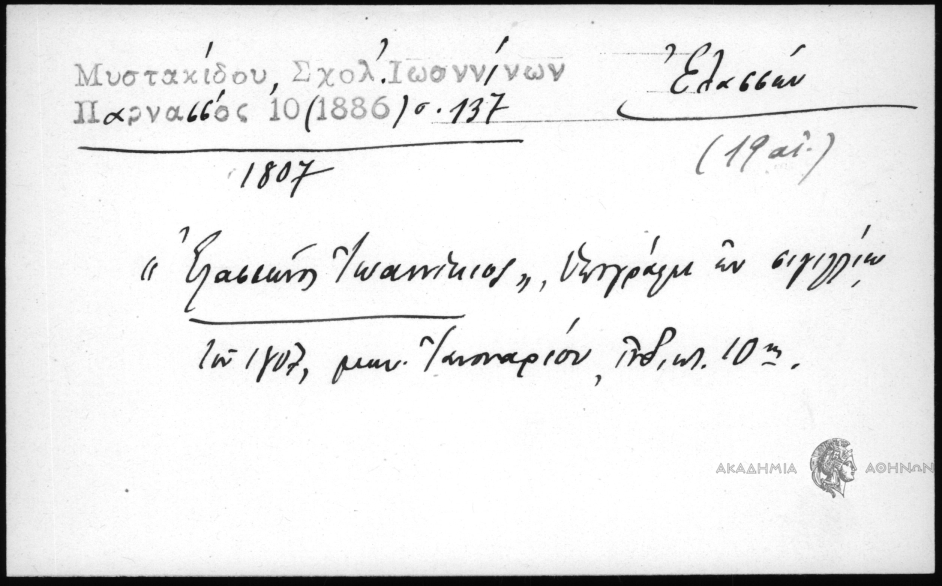 Μυστακίδου, Σχολ. Ἰωαννίνων
Παρνασσός 10 (1886) σ. 137
Ἐλασσών
(19 αἰ.)
1807
«Ἐλασσῶνος Ἰωαννίκιος», ὑπογράφει ἐν σιγιλλίῳ
τοῦ 1807, μην. Ἰανουαρίου, ἰνδικτ. 10ης.
ΑΚΑΔΗΜΙΑ ΑΘΗΝΩΝ